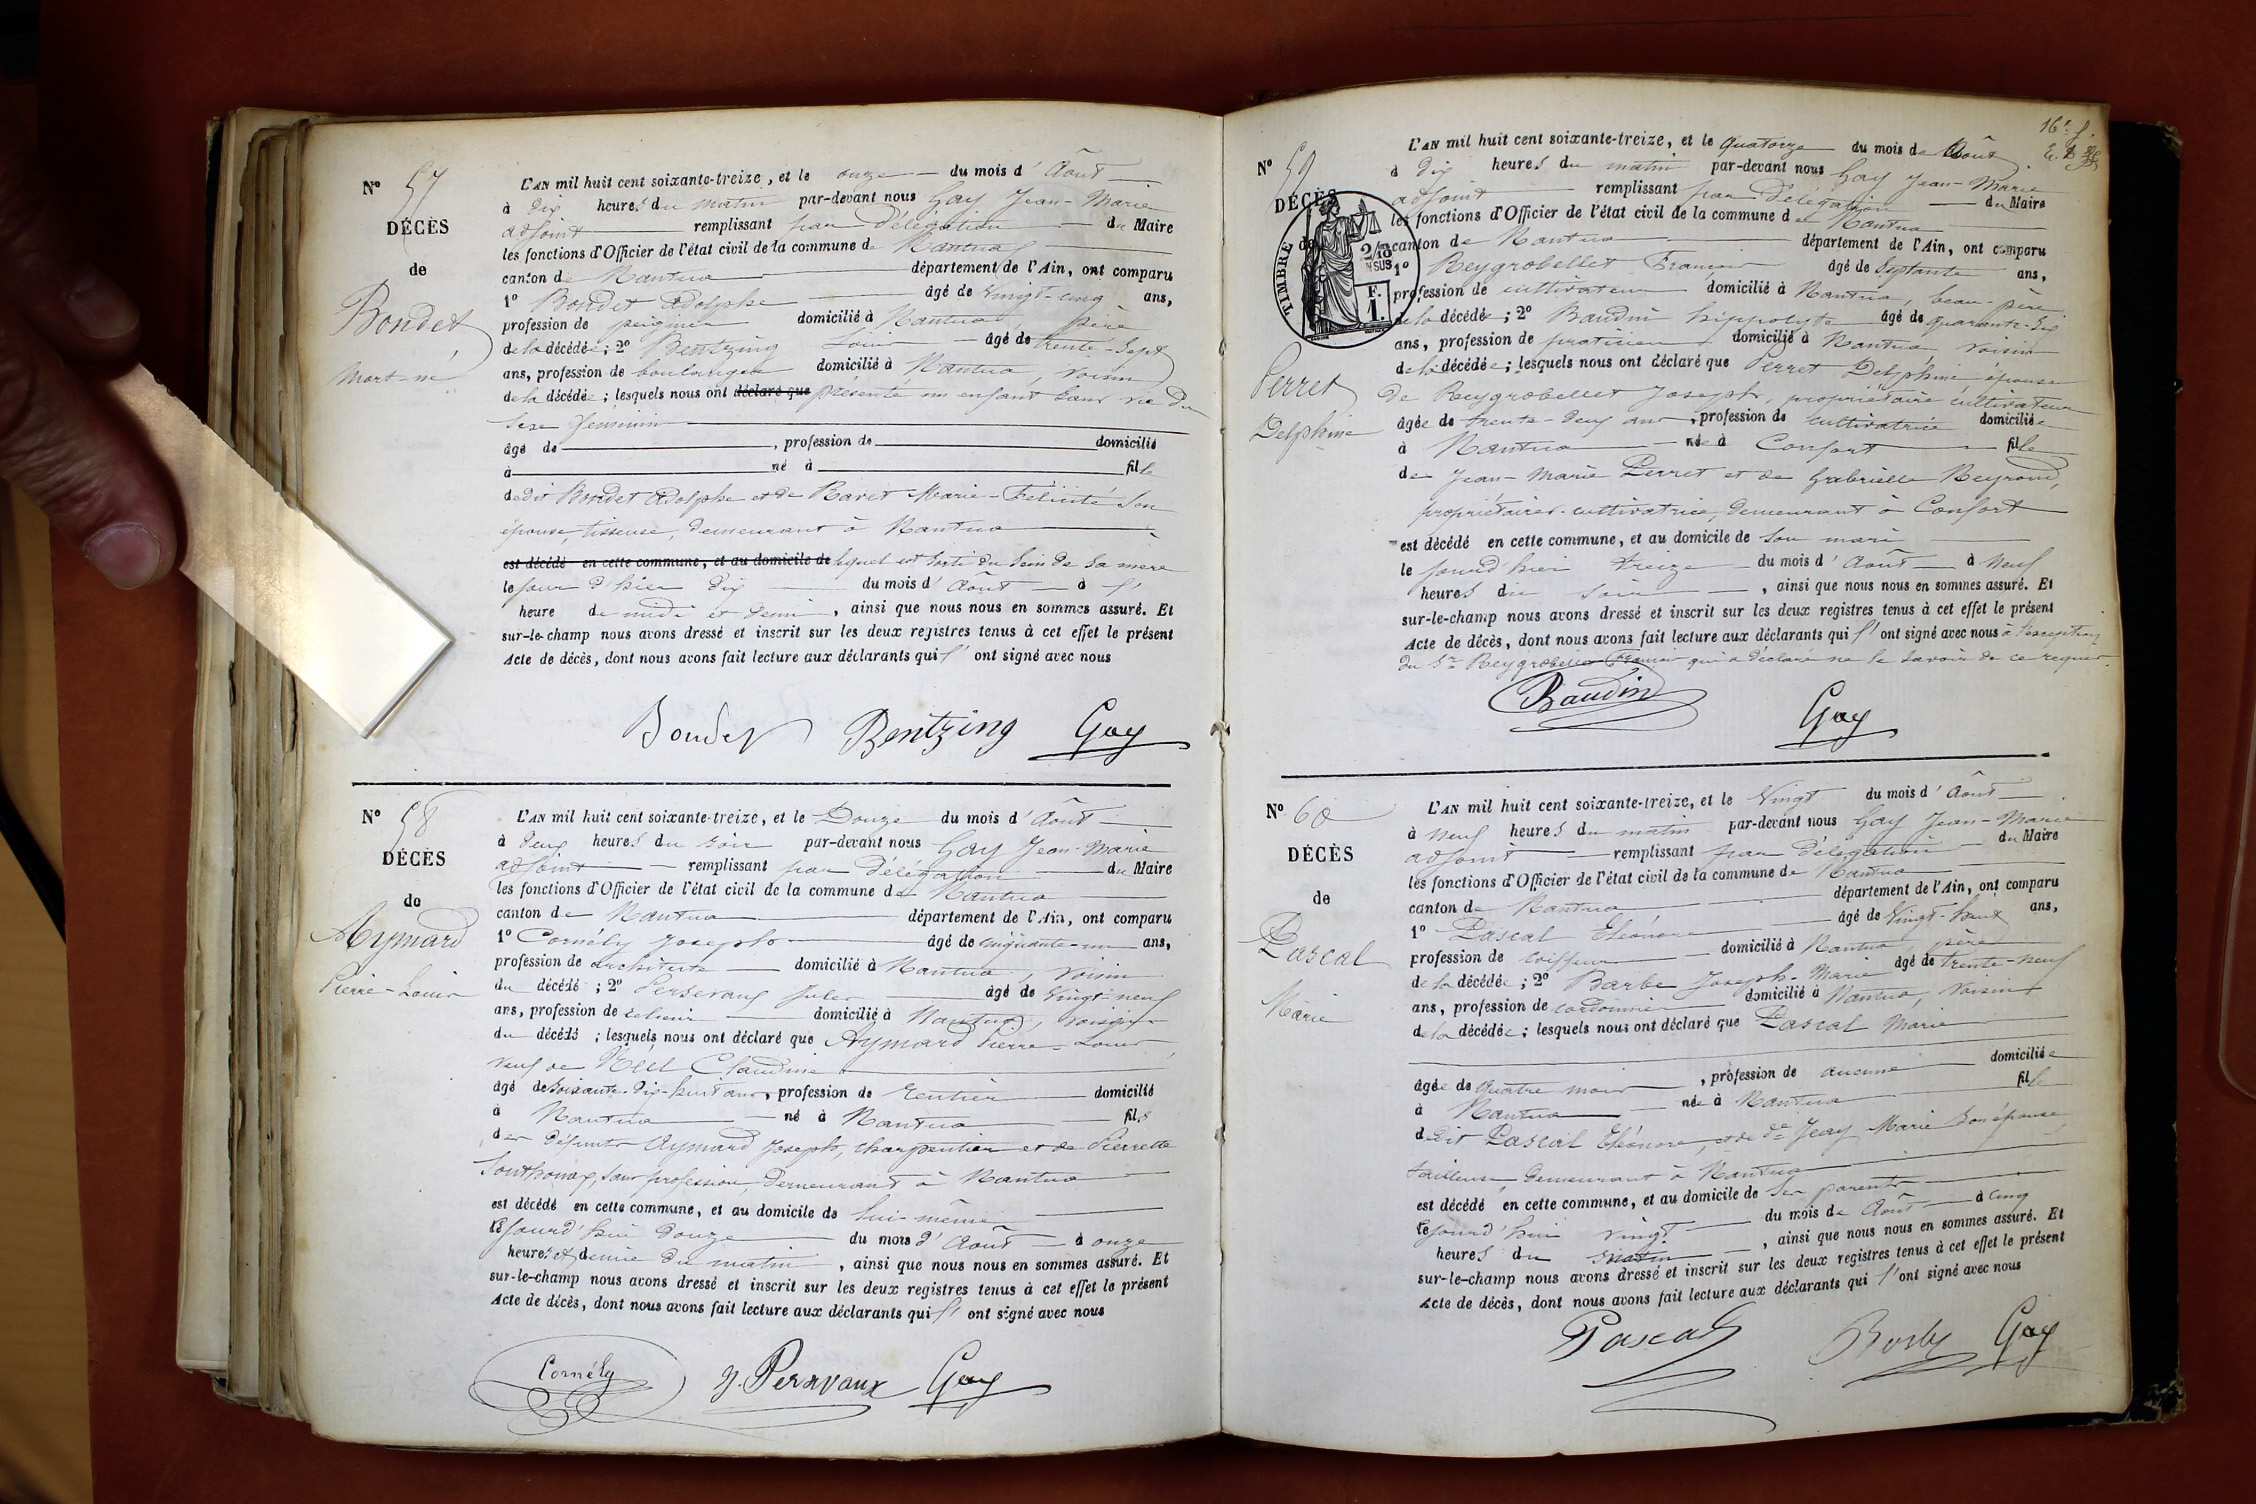 N° 57
DÉCÈS
de
Bondet
mort-né
L'AN mil huit cent soixante-treize, et le onze du mois d'Août
à dix heures du matin par-devant nous Gay Jean-Marie
adjoint remplissant par Délégation du Maire
les fonctions d'Officier de l'état civil de la commune de Nantua
canton de Nantua département de l'Ain, ont comparu
1° Bondet Adolphe âgé de vingt-cinq ans,
profession de peigneur domicilié à Nantua, père
de la décédée; 2° Bentzing Louis âgé de trente-sept
ans, profession de boulanger domicilié à Nantua, voisin
de la décédée; lesquels nous ont déclaré que présenté un enfant sans vie du
sexe féminin
âgé de , profession de domicilié
à né à fille
de dit Bondet Adolphe et de Ravet Marie-Félicité son
épouse, tisseuse, demeurant à Nantua
est décédé en cette commune, et au domicile de lequel est sorti du sein de sa mère
le jour d'hier dix du mois d'Août à l'
heure de midi et demi, ainsi que nous nous en sommes assuré. Et
sur-le-champ nous avons dressé et inscrit sur les deux registres tenus à cet effet le présent
Acte de décès, dont nous avons fait lecture aux déclarants qui l'ont signé avec nous
Bondet Bentzing Gay
N° 58
DÉCÈS
de
Aymard
Pierre-Louis
L'AN mil huit cent soixante-treize, et le Douze du mois d'Août
à deux heures du soir par-devant nous Gay Jean-Marie
adjoint remplissant par délégation du Maire
les fonctions d'Officier de l'état civil de la commune de Nantua
canton de Nantua département de l'Ain, ont comparu
1° Cornély Joseph âgé de cinquante-un ans,
profession de architecte domicilié à Nantua, voisin
du décédé; 2° Perravaux Jules âgé de vingt-neuf
ans, profession de relieur domicilié à Nantua, voisin
du décédé; lesquels nous ont déclaré que Aymard Pierre-Louis
veuf de Claudine
âgé de soixante-dix-huit ans, profession de rentier domicilié
à Nantua né à Nantua fils
des défunts Aymard Joseph, charpentier et de Pierrette
Southonax, sans profession, demeurant à Nantua
est décédé en cette commune, et au domicile de lui-même
le jourd'hui douze du mois d'Août à onze
heures et demie du matin, ainsi que nous nous en sommes assuré. Et
sur-le-champ nous avons dressé et inscrit sur les deux registres tenus à cet effet le présent
Acte de décès, dont nous avons fait lecture aux déclarants qui l'ont signé avec nous
Cornély J. Perravaux Gay
16e f.
N° 59
DÉCÈS
de
TIMBRE
2/10 EN SUS
F. 1.
Perret
Delphine
L'AN mil huit cent soixante-treize, et le quatorze du mois de Août
à dix heures du matin par-devant nous Gay Jean-Marie
adjoint remplissant par Délégation du Maire
les fonctions d'Officier de l'état civil de la commune de Nantua
canton de Nantua département de l'Ain, ont comparu
1° Reygrobellet François âgé de septante ans,
profession de cultivateur domicilié à Nantua, beau-père
de la décédée; 2° Baudin hippolyte âgé de quarante-six
ans, profession de praticien domicilié à Nantua, voisin
de la décédée; lesquels nous ont déclaré que Perret Delphine épouse
de Reygrobellet Joseph, propriétaire cultivateur
âgée de trente-deux ans, profession de cultivatrice domiciliée
à Nantua née à Confort fille
de Jean-Marie Perret et de Gabrielle Reyrond,
propriétaires-cultivatrice, demeurant à Confort
est décédé en cette commune, et au domicile de son mari
le jourd'hier treize du mois d'Août à neuf
heures du soir, ainsi que nous nous en sommes assuré. Et
sur-le-champ nous avons dressé et inscrit sur les deux registres tenus à cet effet le présent
Acte de décès, dont nous avons fait lecture aux déclarants qui l'ont signé avec nous à l'exception
du Sr Reygrobellet François qui a déclaré ne le savoir de ce requis.
Baudin Gay
N° 60
DÉCÈS
de
Pascal
Marie
L'AN mil huit cent soixante-treize, et le Vingt du mois d'Août
à neuf heures du matin par-devant nous Gay Jean-Marie
adjoint remplissant par délégation du Maire
les fonctions d'Officier de l'état civil de la commune de Nantua
canton de Nantua département de l'Ain, ont comparu
1° Pascal Eléonore âgé de vingt-huit ans,
profession de coiffeur domicilié à Nantua, père
de la décédée; 2° Barbe Joseph-Marie âgé de trente-neuf
ans, profession de cordonnier domicilié à Nantua, voisin
de la décédée; lesquels nous ont déclaré que Pascal Marie
âgée de quatre mois, profession de aucune domiciliée
à Nantua née à Nantua fille
de dit Pascal Eléonore, et de de Jeay Marie son épouse
tailleuse, demeurant à Nantua
est décédé en cette commune, et au domicile de ses parents
le jourd'hui vingt du mois de Août à cinq
heures du matin, ainsi que nous nous en sommes assuré. Et
sur-le-champ nous avons dressé et inscrit sur les deux registres tenus à cet effet le présent
Acte de décès, dont nous avons fait lecture aux déclarants qui l'ont signé avec nous
Pascal Gay